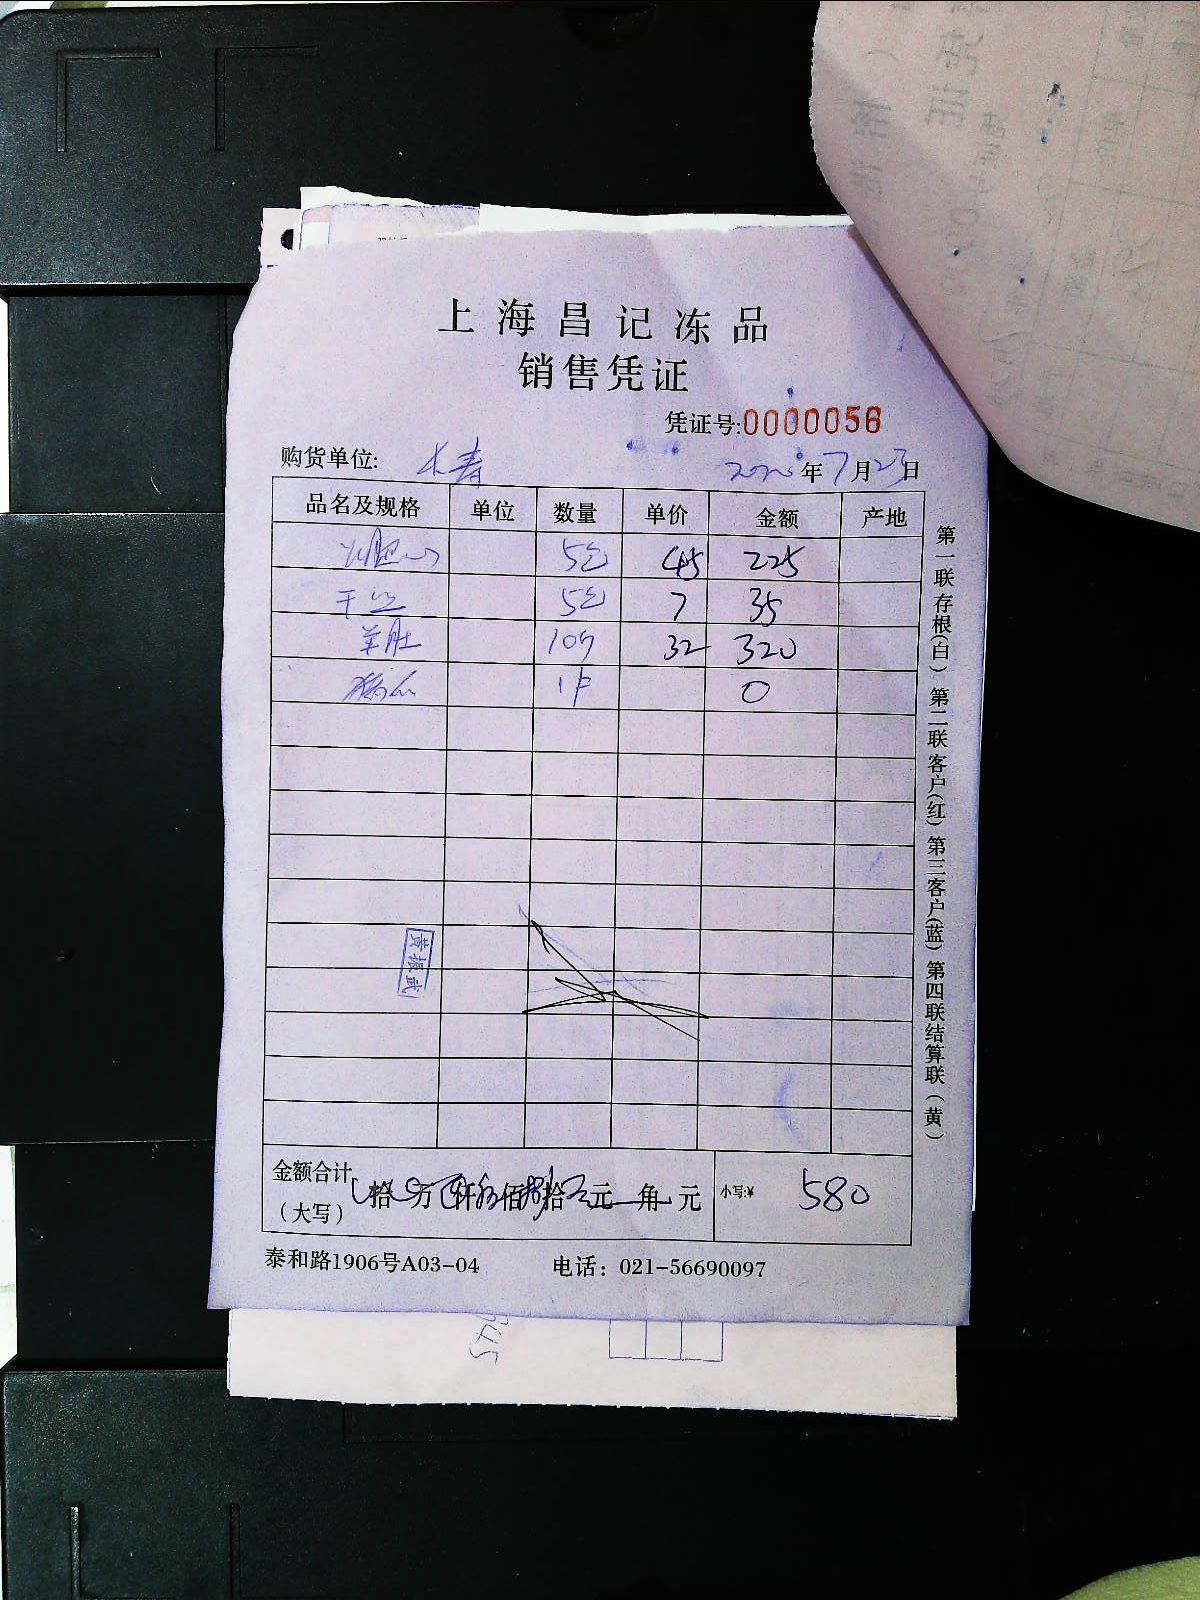 上海昌记冻品
销售凭证
凭证号:0000056
购货单位: 长寿 2020年7月23日
品名及规格 单位 数量 单价 金额 产地
5包 45 225
干丝 5包 7 35
羊肚 10斤 32 320
1件 0
黄振武
金额合计 拾 万 仟 佰 拾 元 角 元 小写:¥ 580
(大写)
泰和路1906号A03-04 电话: 021-56690097
第一联存根(白) 第二联客户(红) 第三客户(蓝) 第四联结算联(黄)
345